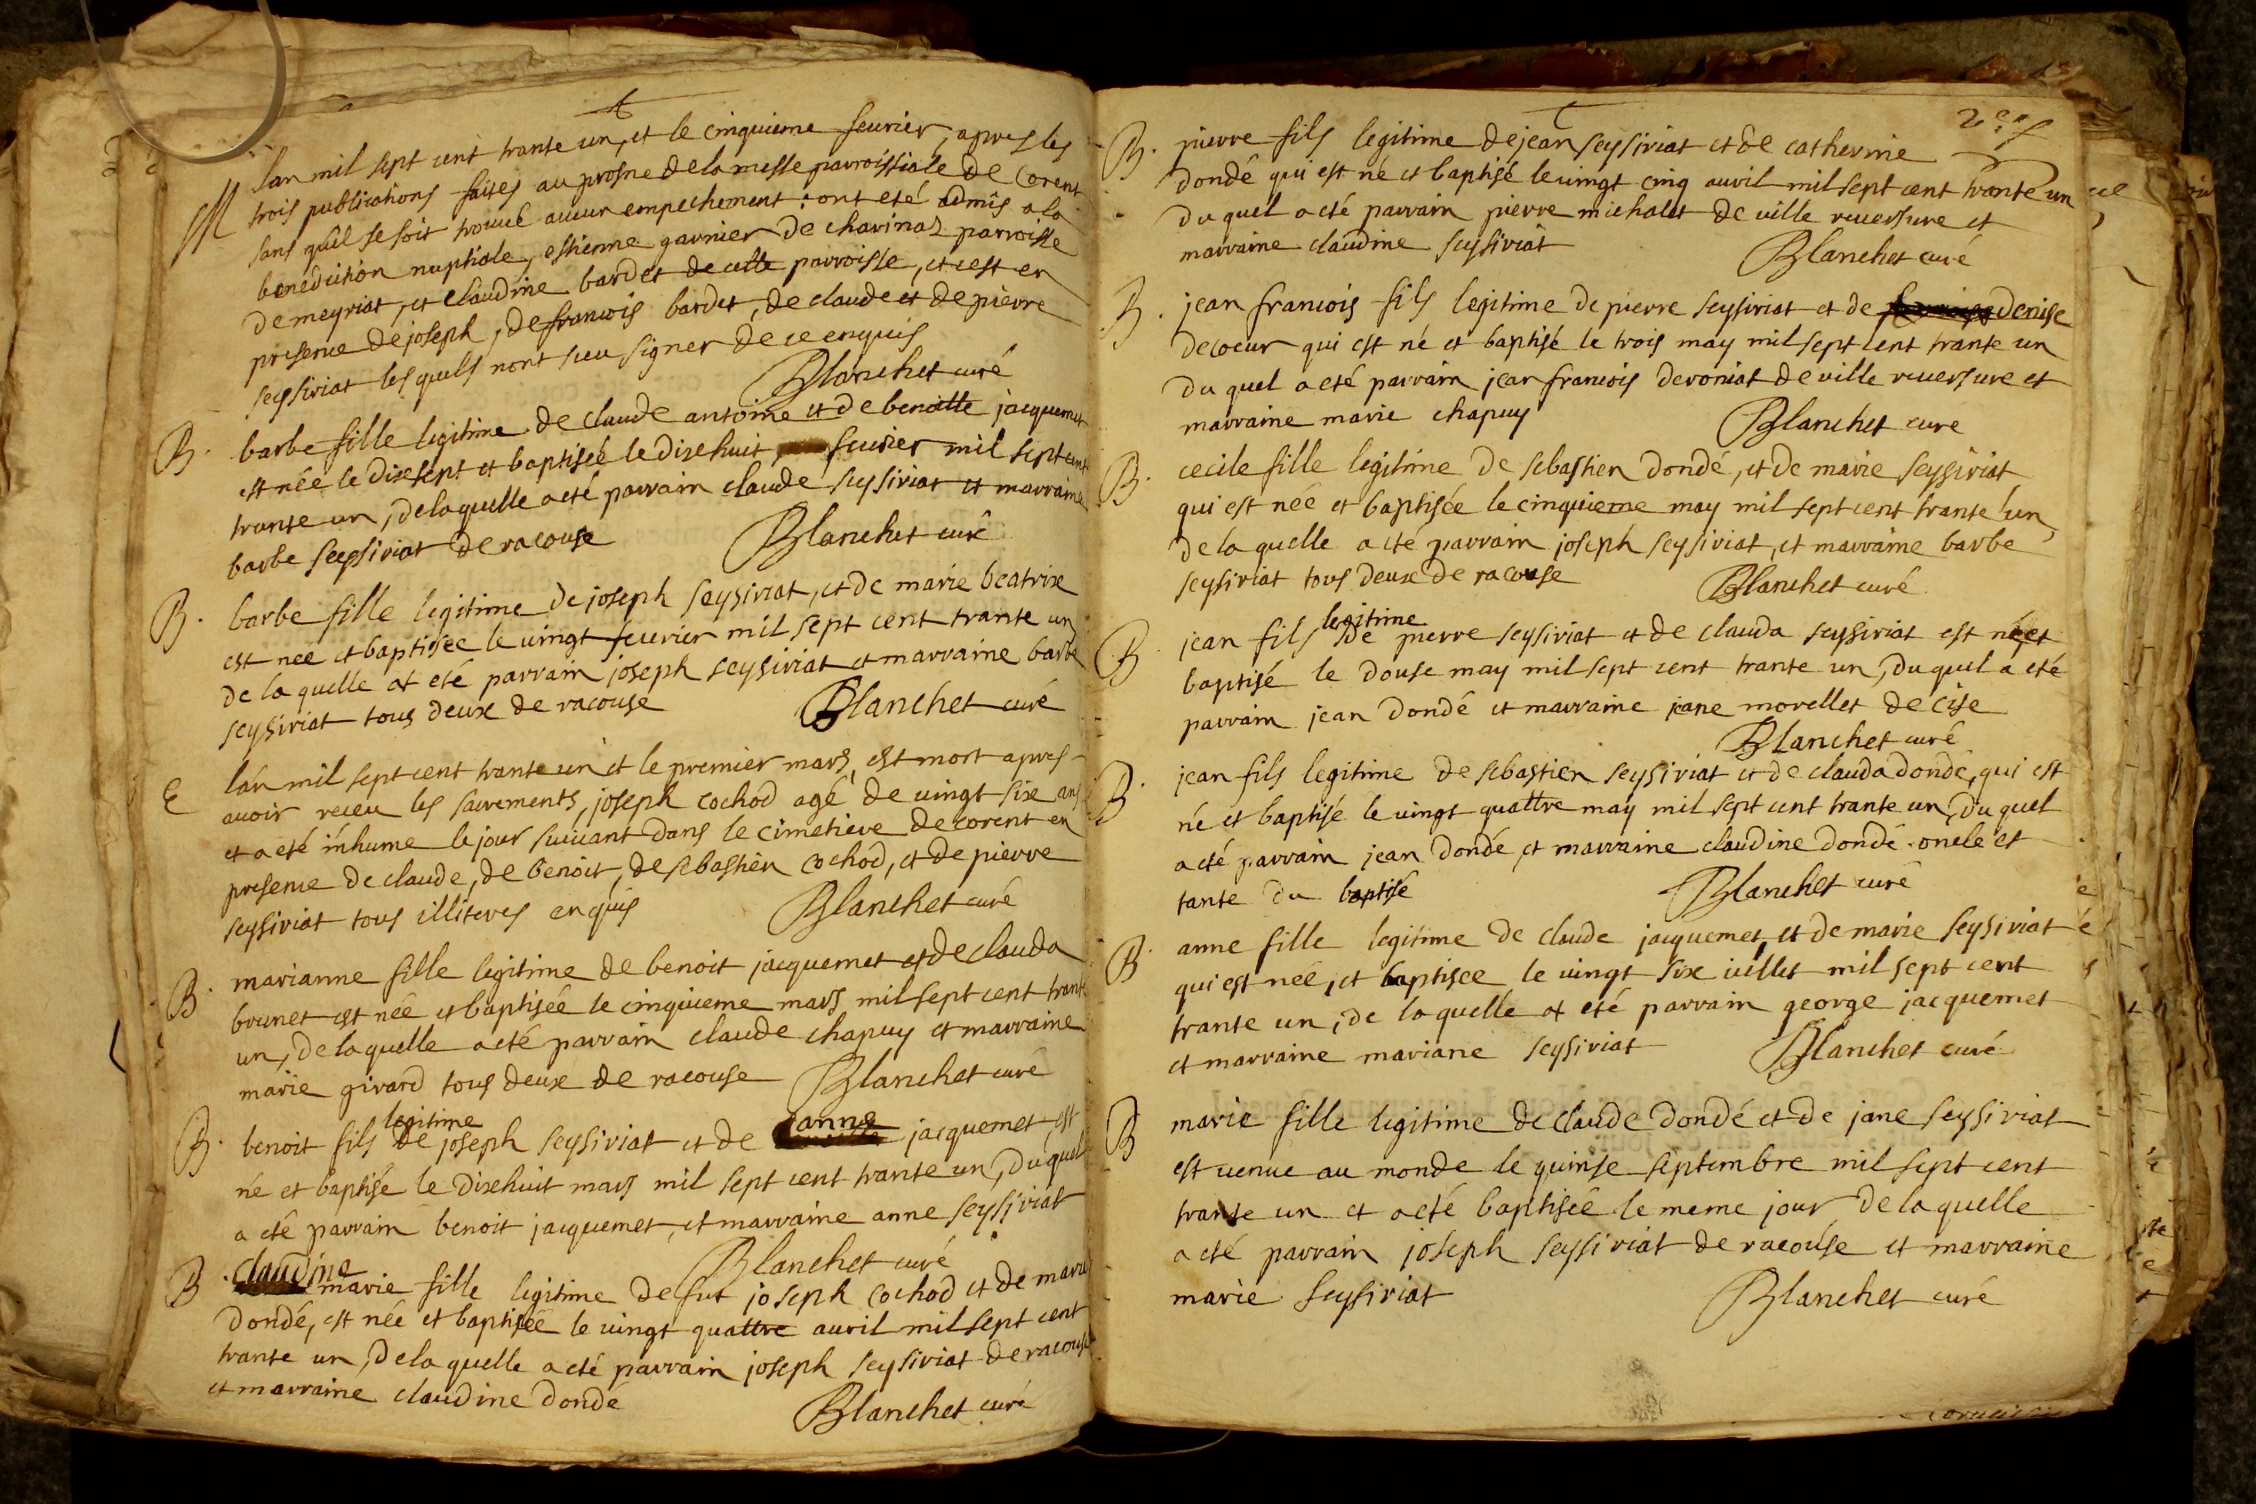 M
lan mil sept cent trante un, et le cinquieme feurier, apres les
trois publications faites au prosne de la messe parroissiale de Corent
sans qu'il se soit trouué aucun empechement : ont eté admis a la
benediction nuptiale, estienne garnier de chavinaz parroisse
de meyriat, et claudine bardet de cette parroisse, et cest en
presence de joseph, de francois bardet, de claude et de pierre
seysiriat les quels nont sceu signer de ce enquis
Blanchet curé
B. barbe fille legitime de claude antoine et de benoitte jacquemet
est née le dixsept et baptisée le dixehuit feurier mil sept cent
trante un, de laquelle a eté parrain claude seysiriat et marraine
barbe seysiriat de racouse Blanchet curé
B. barbe fille legitime de joseph seysiriat, et de marie beatrix
est nee et baptisée le uingt feurier mil sept cent trante un
de la quelle a eté parrain joseph seysiriat et marraine barbe
seysiriat tous deux de racouse Blanchet curé
E lán mil sept cent trante un et le premier mars, est mort apres
auoir receu les sacrements, joseph cochod agé de uingt six ans
et a eté inhume le jour suiuant dans le cimetiere de corent en
presence de claude, de benoit, de sebastien cochod, et de pierre
seysiriat tous illiteres enquis Blanchet curé
B. marianne fille legitime de benoit jacquemet et de clauda
brunet est née et baptisée le cinquieme mars mil sept cent trante
un, de laquelle a eté parrain claude chapuy et marraine
marie girard tous deux de racouse Blanchet curé
B. benoit fils legitime de joseph seysiriat et de anne jacquemet, est
né et baptisé le dixehuit mars mil sept cent trante un, du quel
a eté parrain benoit jacquemet, et marraine anne seysiriat
Blanchet curé
B claudine marie fille legitime de fut joseph cochod et de marie
dondé, est née et baptisée le uingt quattre auril mil sept cent
trante un, de la quelle a eté parrain joseph seysiriat de racouse
et marraine claudine dondé Blanchet curé
B. pierre fils legitime de jean seysiriat et de catherine
dondé qui est né et baptisé le uingt cinq auril mil sept cent trante un
du quel a eté parrain pierre michalet de ville reuersure et
marraine claudine seysiriat Blanchet curé
B. jean francois fils legitime de pierre seysiriat et de denise
decoeur qui est né et baptisé le trois may mil sept cent trante un
du quel a eté parrain jean francois deroniat de ville reuersure et
marraine marie chapuy Blanchet cure
B. cecile fille legitime de sebastien dondé, et de marie seysiriat
qui est née et baptisée le cinquieme may mil sept cent trante un,
de la quelle a eté parrain joseph seysiriat, et marraine barbe
seysiriat tous deux de racouse Blanchet curé
B. jean fils legitime de pierre seysiriat et de clauda seysiriat est né et
baptisé le douse may mil sept cent trante un, du quel a eté
parrain jean dondé et marraine jeane morellet de cise
Blanchet curé
B. jean fils legitime de sebastien seysiriat et de clauda dondé, qui est
né et baptisé le uingt quattre may mil sept cent trante un, du quel
a eté parrain jean dondé, et marraine claudine dondé oncle et
tante du baptisé Blanchet curé
B. anne fille legitime de claude jacquemet, et de marie seysiriat
qui est née, et baptisee le uingt six iuillet mil sept cent
trante un, de la quelle a eté parrain george jacquemet
et marraine mariane seysiriat Blanchet curé
B marie fille legitime de claude dondé et de jane seysiriat
est uenue au monde le quinse septembre mil sept cent
trante un et a eté baptisée le meme jour de la quelle
a eté parrain joseph seysiriat de racouse et marraine
marie seysiriat Blanchet curé